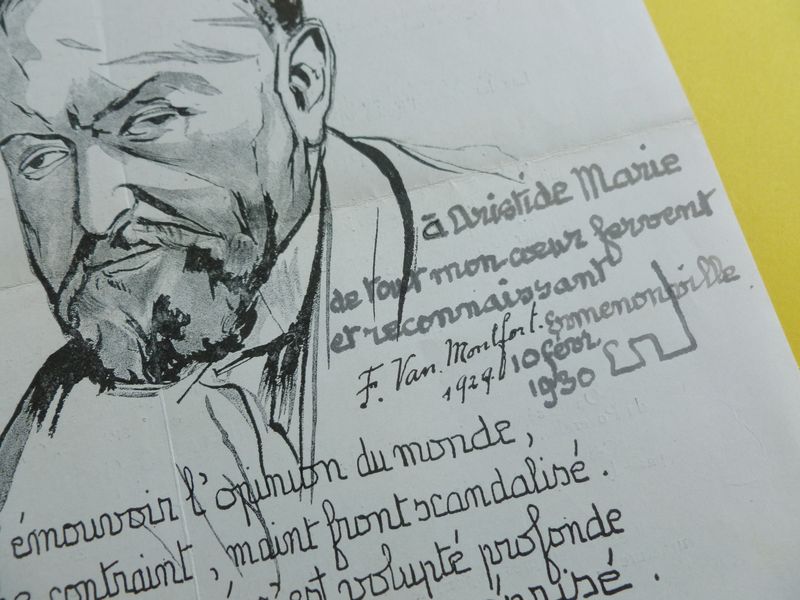 à Aristide Marie
de tout mon cœur fervent
et reconnaissant
F. Van. Montfort.
1929.
10 févr
1930
émouvoir l'opinion du monde,
contraint, maint front scandalisé.
c'est volupté profonde